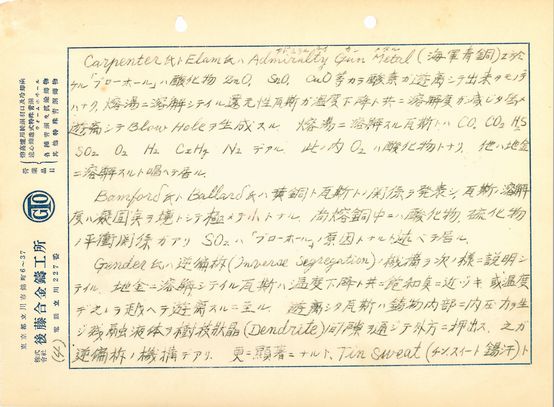 Carpenter氏トElam氏ハAdmiralty Gun Metal(海軍青銅)ニ於
ケル「ブローホール」ハ酸化物 ZnO, SnO, CuO等カラ酸素ガ遊離シテ出来タモノデ
ハナク、熔湯ニ溶解シテイル還元性瓦斯ガ温度下降ト共ニ溶解度ガ減ジタ為メ
遊離シテBlow Holeヲ生成スル。 熔湯ニ溶解スル瓦斯トハCO, CO2, H2S
SO2 O2 H2 CxHy N2 デアル。此ノ内O2ハ酸化物トナリ、他ハ地金
ニ溶解スルト唱ヘテ居ル。
Bamford氏トBallard氏ハ黄銅ト瓦斯トノ関係ヲ発表シ、瓦斯ノ溶解
度ハ凝固点ヲ境トシテ極メテ小トナル。尚熔銅中ニハ酸化物、硫化物
ノ平衡関係ガアリ SO2ハ「ブローホール」ノ原因トナルト述ベテ居ル。
Gender氏ハ逆偏析(Inverse Segregation)ノ機構ヲ次ノ様ニ説明シ
テイル。地金ニ溶解シテイル瓦斯ハ温度下降ト共ニ飽和点ニ近ヅキ或温度
デ之レヲ越ヘテ遊離スルニ至ル。 遊離シタ瓦斯ハ鋳物内部ニ内圧力ヲ生
ジ残融液体ヲ樹枝状晶(Dendrite)ノ間隙ヲ通シテ外方ニ押出ス、之ガ
逆偏析ノ機構デアリ、更ニ顕著ニナルト、Tin Sweat(チンスイート錫汗)ト
営業品目
各種青銅鋳物
其他特殊青銅鋳物
GTO
株式会社 後藤合金鋳工所
東京都立川市錦町6~37
電話立川227番
(4)